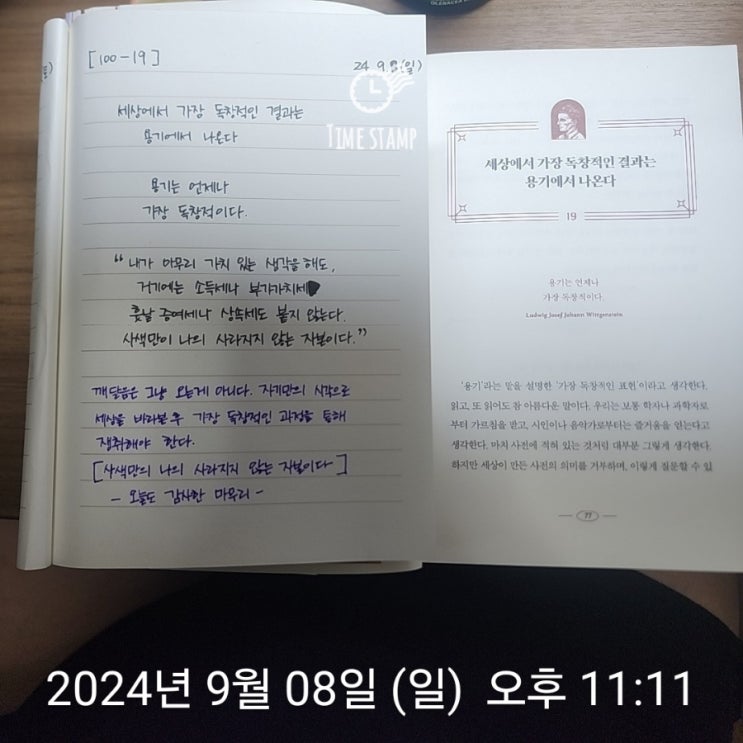 [100-19]
24. 9. 8 (일)
세상에서 가장 독창적인 결과는
용기에서 나온다
용기는 언제나
가장 독창적이다.
"내가 아무리 가치 있는 생각을 해도,
거기에는 소득세나 부가가치세
훗날 증여세나 상속세도 붙지 않는다.
사색만이 나의 사라지지 않는 자본이다."
깨달음은 그냥 오는게 아니다. 자기만의 시각으로
세상을 바라본 후 가장 독창적인 과정을 통해
쟁취해야 한다.
[사색만의 나의 사라지지 않는 자본이다]
- 오늘도 감사한 마무리 -
TIME STAMP
세상에서 가장 독창적인 결과는
용기에서 나온다
19
용기는 언제나
가장 독창적이다.
Ludwig Josef Johann Wittgenstein
'용기'라는 말을 설명한 '가장 독창적인 표현'이라고 생각한다.
읽고, 또 읽어도 참 아름다운 말이다. 우리는 보통 학자나 과학자로
부터 가르침을 받고, 시인이나 음악가로부터는 즐거움을 얻는다고
생각한다. 마치 사전에 적혀 있는 것처럼 대부분 그렇게 생각한다.
하지만 세상이 만든 사전의 의미를 거부하며, 이렇게 질문할 수 있
77
2024년 9월 08일 (일) 오후 11:11